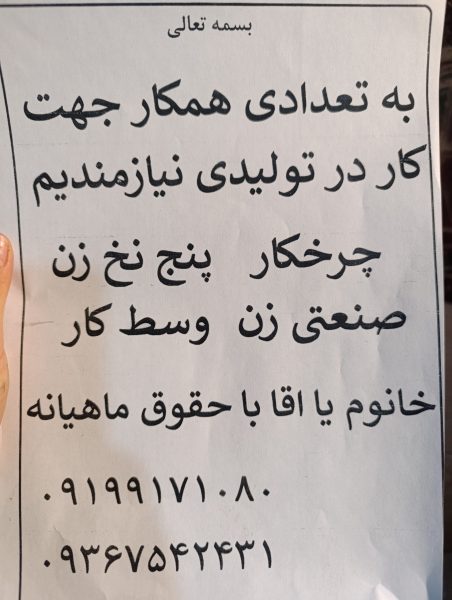 بسمه تعالی
به تعدادی همکار جهت
کار در تولیدی نیازمندیم
چرخکار پنج نخ زن
صنعتی زن وسط کار
خانوم یا اقا با حقوق ماهیانه
۰۹۱۹۹۱۷۱۰۸۰
۰۹۳۶۷۵۴۲۴۳۱